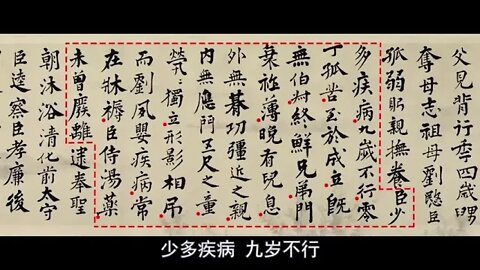 父見背行年四歲舅
奪母志祖母劉愍臣
孤弱躬親撫養臣少
多疾病九歲不行零
丁孤苦至於成立既
無伯叔終鮮兄弟門
衰祚薄晚有兒息
外無朞功彊近之親
內無應門五尺之童
煢〻獨立形影相吊
而劉夙嬰疾病常
在牀褥臣侍湯藥
未曾廢離逮奉聖
朝沐浴清化前太守
臣逵察臣孝廉後
少多疾病 九岁不行